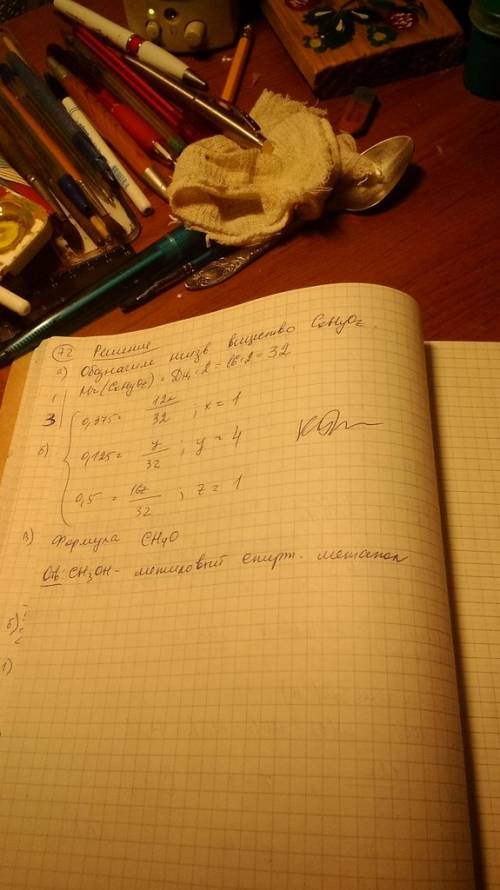 72 Решение
а) Обозначим неизв вещество CxHyOz
1 Mr(CxHyOz) = DH2 · 2 = 16·2 = 32
3 0,375 = 12x/32 ; x = 1
б) 0,125 = y/32 ; y = 4
0,5 = 16z/32 ; z = 1
в) Формула CH4O
Отв: CH3OH - метиловый спирт. метанол
б)
1)